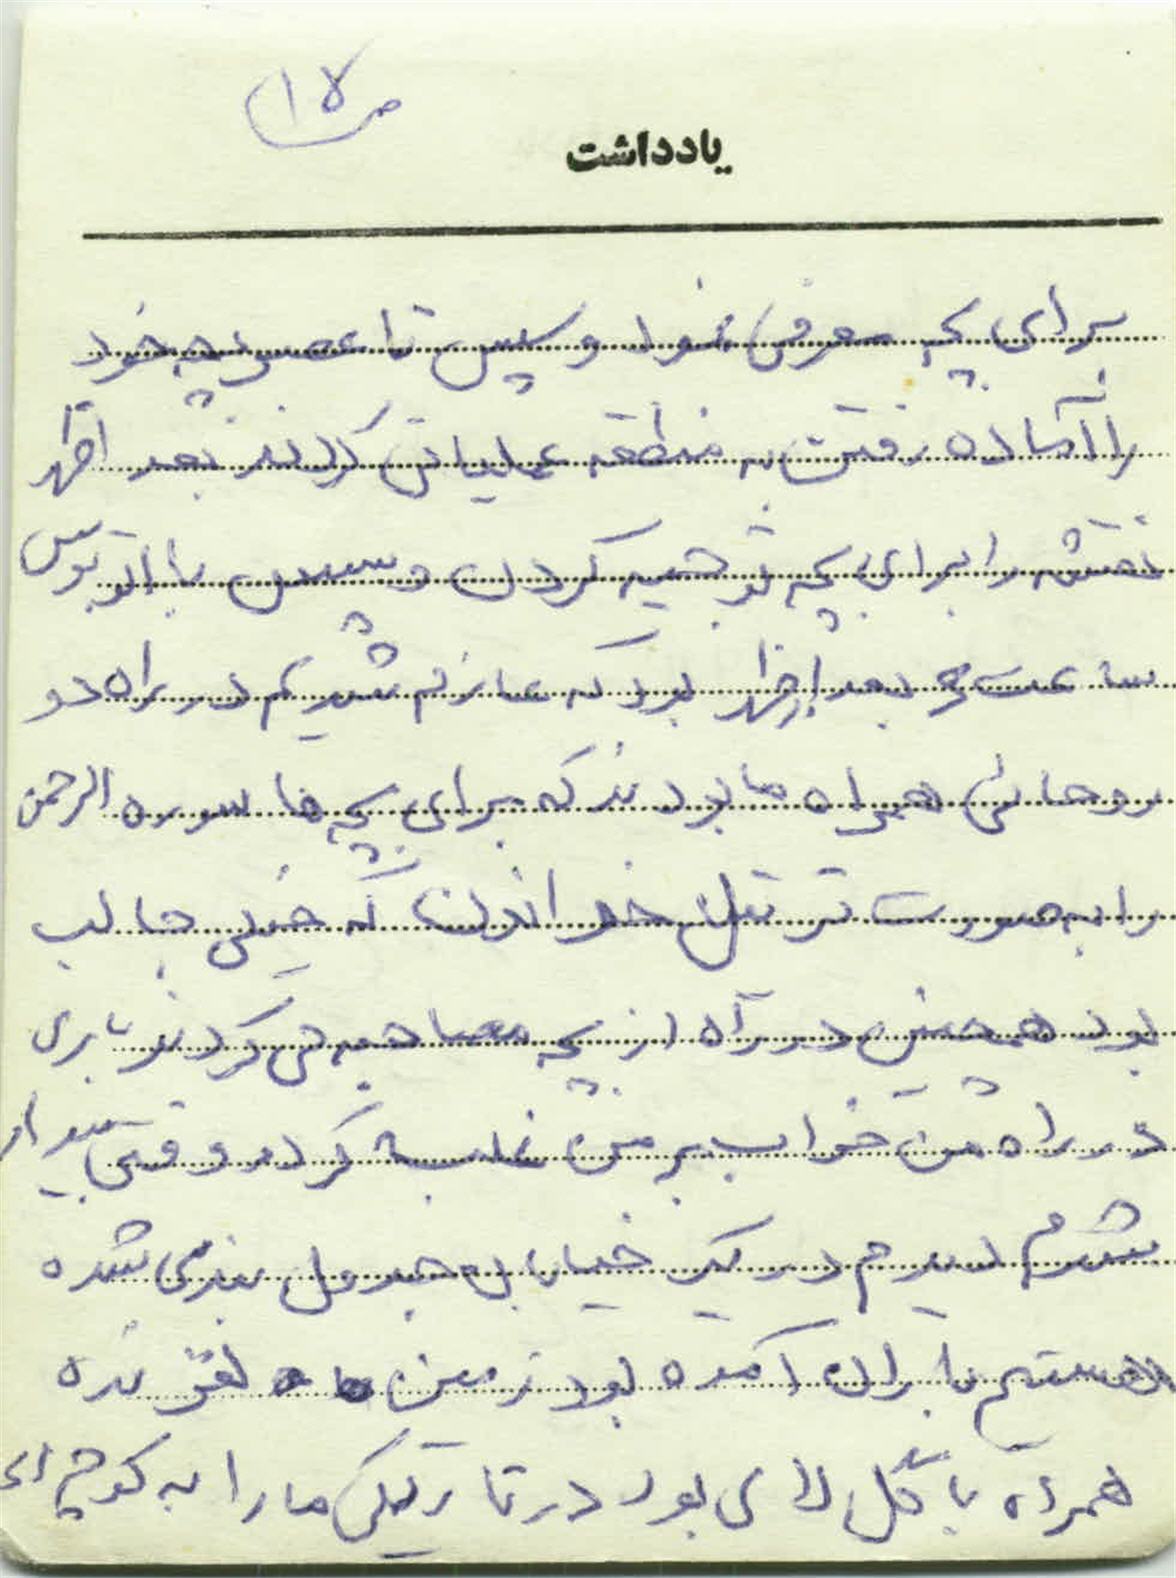 ص ۱۵
یادداشت
برای بچه معرفی نمود و سپس تا عصر بچه خود
را آماده رفتن به منطقه عملیاتی کردند بعد اظهر
نقشه را برای بچه توجیه کردن و سپس با اتوبوس
ساعت بعد ازظهر بود که عازم شدیم در راه دو
روحانی همراه ما بودند که برای بچه ها سوره الرحمن
را به صورت ترتیل خواندن که خیلی جالب
بود همچنین در راه از بچه مصاحبه می کردند باری
در راه من خواب بر من غلبه کرد و وقتی بیدار
شدم دیدم در یک خیابان جدول بندی شده
هستم باران آمده بود زمین لغزنده
همراه با گل لای بود در تاریکی ما را به کوچه ای